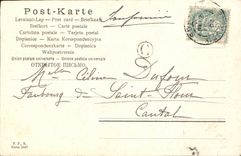 Post-Karte
Levelező-Lap • Post card • Briefkaart
Brefkort • Carte postale
Cartolina postale • Tarjeta postal
Dopisnice • Karta Korespondencyjna
Correspondenzkarte • Dopisnica
Weltpostverein
Union postale universelle
ОТКРЫТОЕ ПИСЬМО.
Imprimé
C
Mlle Céline Dufour
Faubourg de Saint-Flour
Cantal